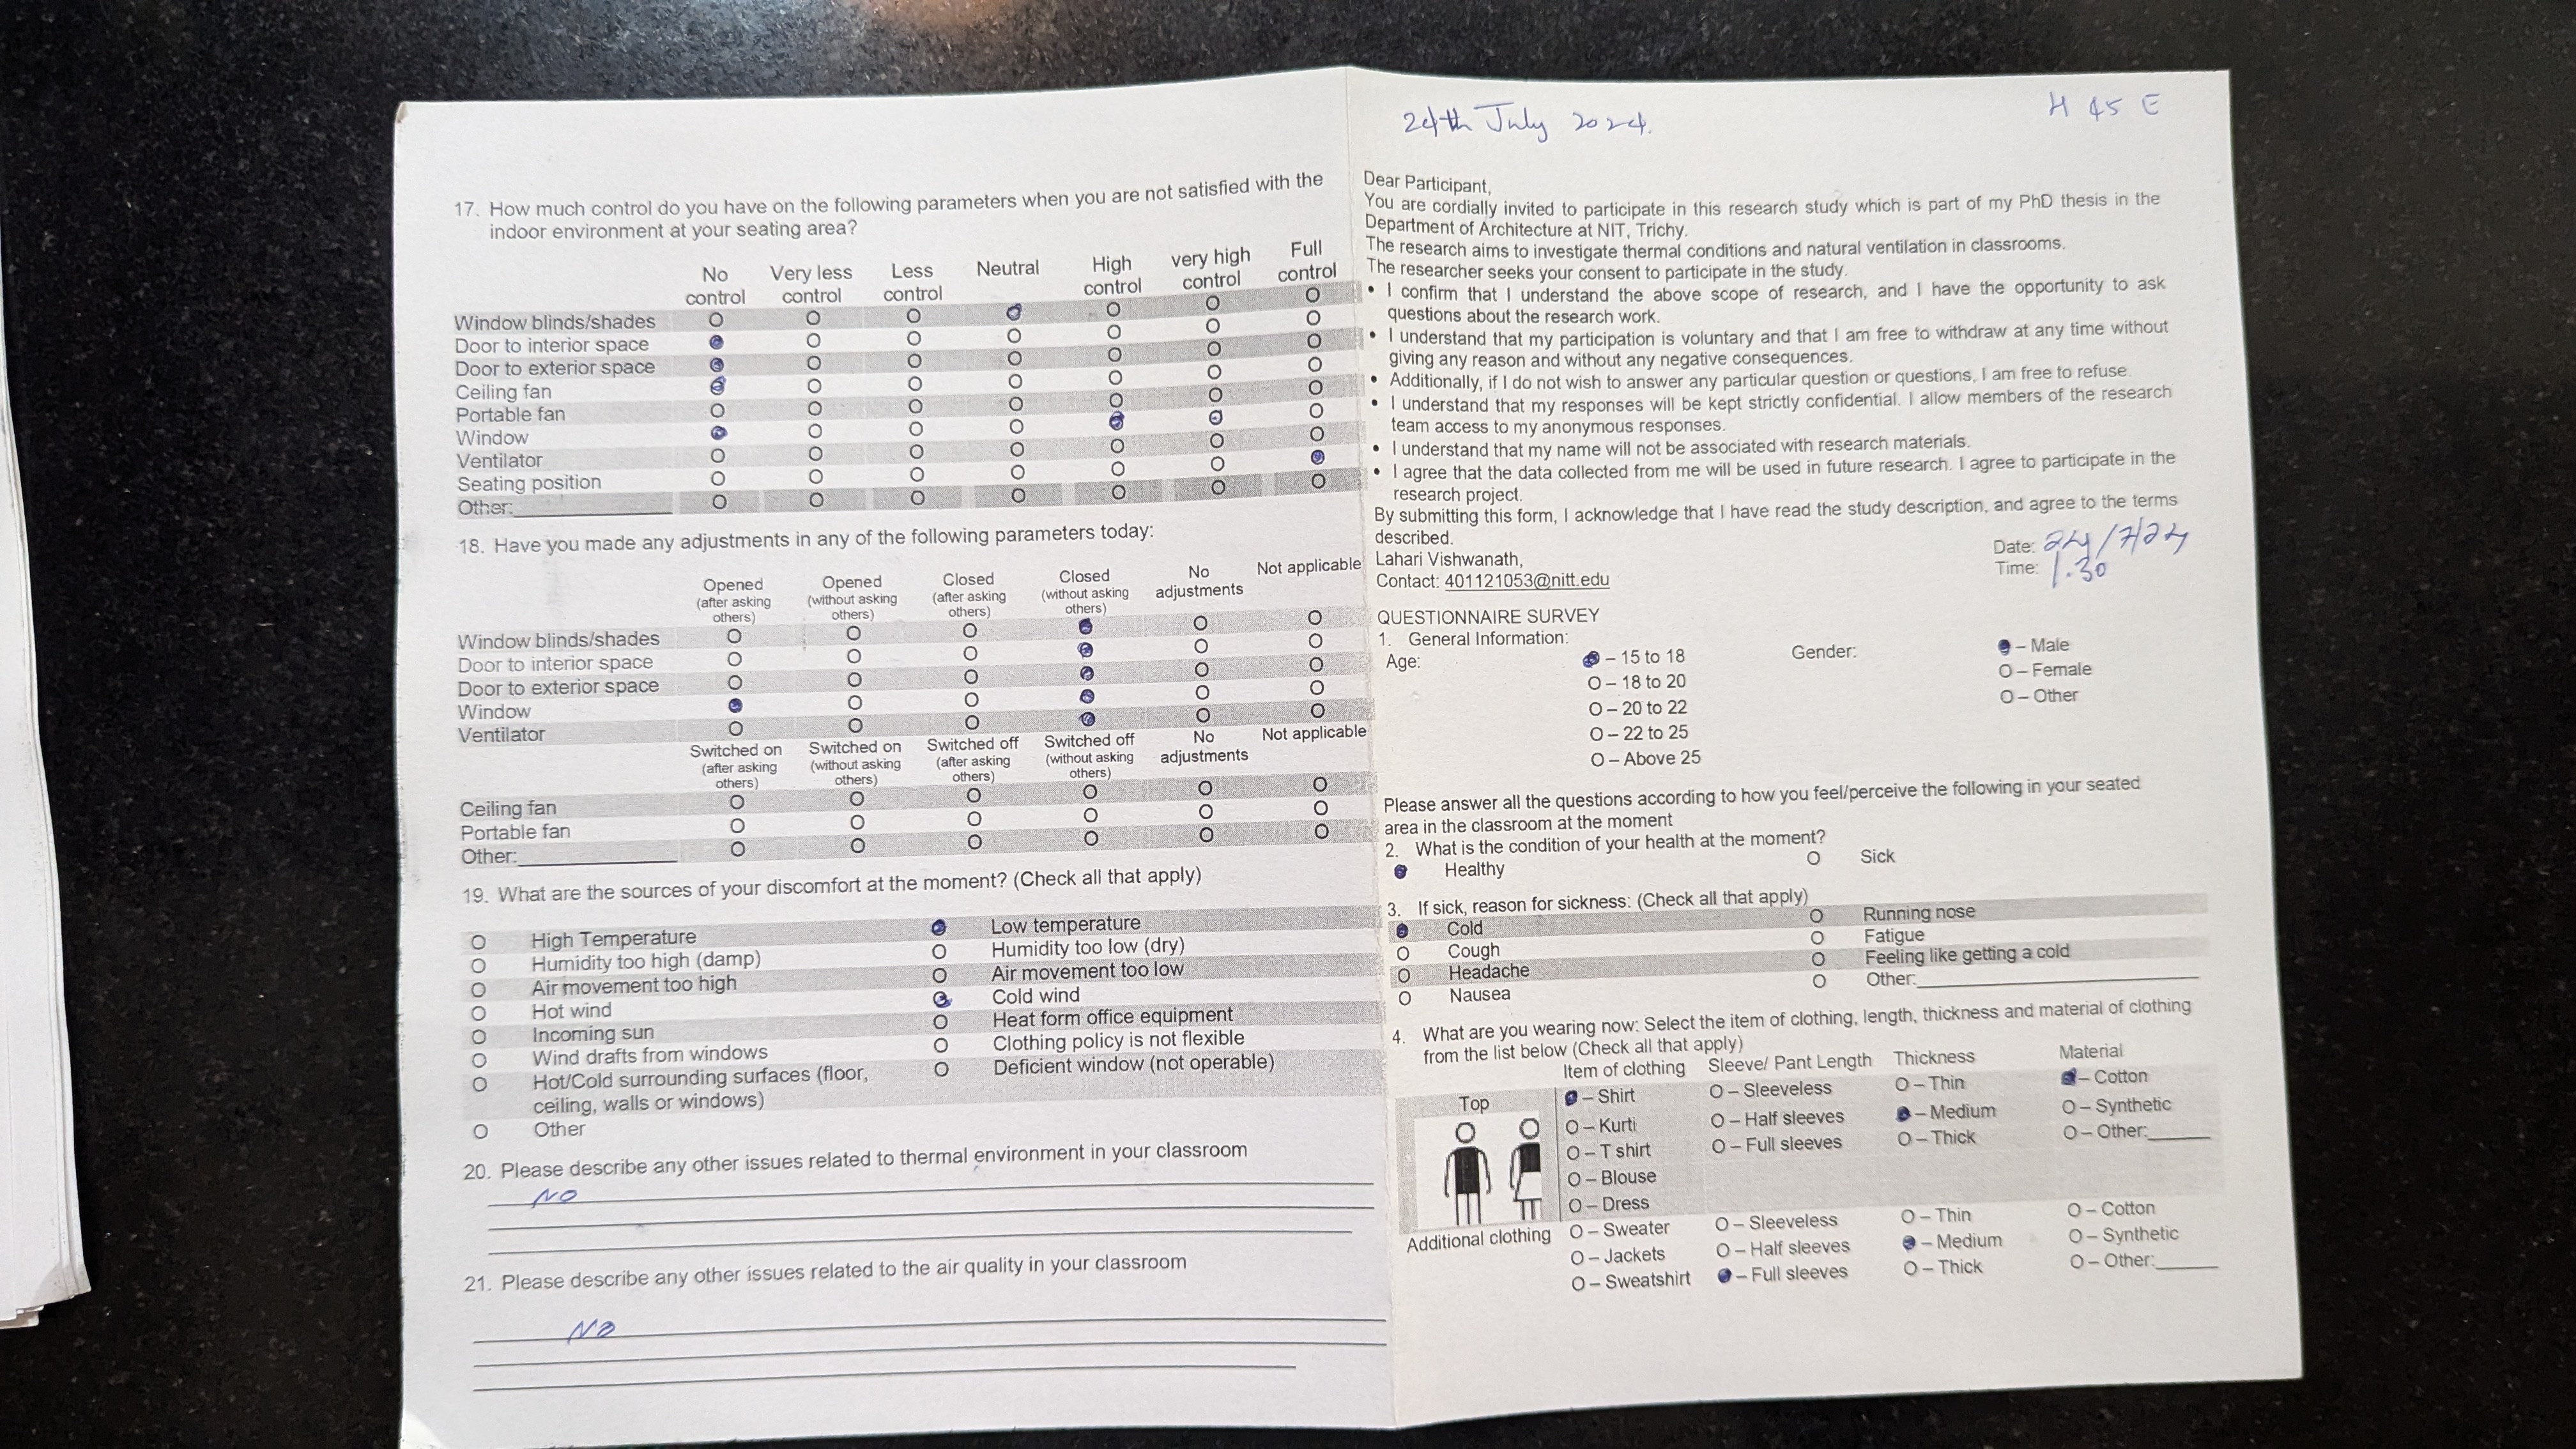 17. How much control do you have on the following parameters when you are not satisfied with the
indoor environment at your seating area?
No control Very less control Less control Neutral High control very high control Full control
Window blinds/shades
Door to interior space
Door to exterior space
Ceiling fan
Portable fan
Window
Ventilator
Seating position
Other:
18. Have you made any adjustments in any of the following parameters today:
Opened (after asking others) Opened (without asking others) Closed (after asking others) Closed (without asking others) No adjustments Not applicable
Window blinds/shades
Door to interior space
Door to exterior space
Window
Ventilator
Switched on (after asking others) Switched on (without asking others) Switched off (after asking others) Switched off (without asking others) No adjustments Not applicable
Ceiling fan
Portable fan
Other:
19. What are the sources of your discomfort at the moment? (Check all that apply)
High Temperature Low temperature
Humidity too high (damp) Humidity too low (dry)
Air movement too high Air movement too low
Hot wind Cold wind
Incoming sun Heat form office equipment
Wind drafts from windows Clothing policy is not flexible
Hot/Cold surrounding surfaces (floor, Deficient window (not operable)
ceiling, walls or windows)
Other
20. Please describe any other issues related to thermal environment in your classroom
NO
21. Please describe any other issues related to the air quality in your classroom
NO
24th July 2024.
H 45 E
Dear Participant,
You are cordially invited to participate in this research study which is part of my PhD thesis in the
Department of Architecture at NIT, Trichy.
The research aims to investigate thermal conditions and natural ventilation in classrooms.
The researcher seeks your consent to participate in the study.
• I confirm that I understand the above scope of research, and I have the opportunity to ask
questions about the research work.
• I understand that my participation is voluntary and that I am free to withdraw at any time without
giving any reason and without any negative consequences.
• Additionally, if I do not wish to answer any particular question or questions, I am free to refuse.
• I understand that my responses will be kept strictly confidential. I allow members of the research
team access to my anonymous responses.
• I understand that my name will not be associated with research materials.
• I agree that the data collected from me will be used in future research. I agree to participate in the
research project.
By submitting this form, I acknowledge that I have read the study description, and agree to the terms
described.
Lahari Vishwanath,
Contact: 401121053@nitt.edu
Date: 24/7/24
Time: 1.30
QUESTIONNAIRE SURVEY
1. General Information:
Age: – 15 to 18 Gender: – Male
O – 18 to 20 O – Female
O – 20 to 22 O – Other
O – 22 to 25
O – Above 25
Please answer all the questions according to how you feel/perceive the following in your seated
area in the classroom at the moment
2. What is the condition of your health at the moment?
Healthy Sick
3. If sick, reason for sickness: (Check all that apply)
Cold Running nose
Cough Fatigue
Headache Feeling like getting a cold
Nausea Other:
4. What are you wearing now: Select the item of clothing, length, thickness and material of clothing
from the list below (Check all that apply)
Item of clothing Sleeve/ Pant Length Thickness Material
Top – Shirt O – Sleeveless O – Thin – Cotton
O – Kurti O – Half sleeves – Medium O – Synthetic
O – T shirt O – Full sleeves O – Thick O – Other:
O – Blouse
O – Dress
Additional clothing O – Sweater O – Sleeveless O – Thin O – Cotton
O – Jackets O – Half sleeves – Medium O – Synthetic
O – Sweatshirt – Full sleeves O – Thick O – Other: